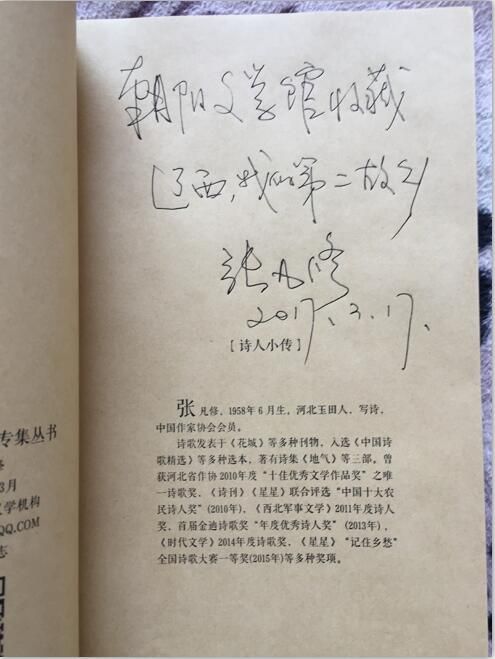 朝阳文学馆收藏
辽西,我的第二故乡
张凡修
2017.3.17.
[诗人小传]
张凡修,1958年6月生,河北玉田人,写诗,
中国作家协会会员。
诗歌发表于《花城》等多种刊物,入选《中国诗
歌精选》等多种选本,著有诗集《地气》等三部。曾
获河北省作协2010年度“十佳优秀文学作品奖”之唯
一诗歌奖,《诗刊》《星星》联合评选“中国十大农
民诗人奖”(2010年),《西北军事文学》2011年度诗人
奖,首届金迪诗歌奖“年度优秀诗人奖”(2013年),
《时代文学》2014年度诗歌奖,《星星》“记住乡愁”
全国诗歌大赛一等奖(2015年)等多种奖项。
专集丛书
3月
文学机构
QQ.COM
志